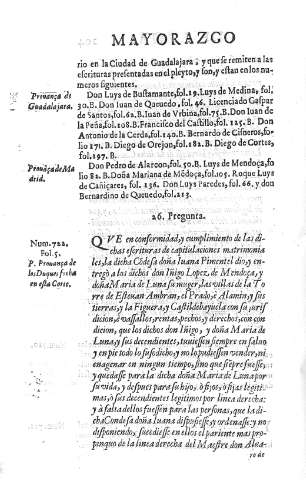 MAYORAZGO
rio en la Ciudad de Guadalajara; y que se remiten a las
escrituras presentadas en el pleyto, y son, y estan en los nu
meros siguientes.
Prouança de
Guadalajara.
Don Luys de Bustamante, fol. 19. Luys de Medina, fol.
30. B. Don Iuan de Quevedo, fol. 46. Licenciado Gaspar
de Santos, fol. 62. B. Iuan de Vrbina, fol. 75. B. Don Iuan de
la Peña, fol. 108. B. Francisco del Castillo, fol. 125. B. Don
Antonio de la Cerda, fol. 140. B. Bernardo de Cisneros, fo-
lio 171. B. Diego de Orejon, fol. 182. B. Diego de Cortes,
fol. 197. B.
Prouāça de Ma
drid.
Don Pedro de Alarcon, fol. 50. B. Luys de Mendoça, fo
lio 82. B. Doña Mariana de Mēdoça, fol. 105. Roque Luys
de Cañiçares, fol. 136. Don Luys Paredes, fol. 66, y don
Bernardino de Quevedo, fol. 213.
26. Pregunta.
Num. 722.
Fol. 5.
P. Prouança de
los Duques fecha
en esta Corte.
QVE en conformidad, y cumplimiento de las di-
chas escrituras de capitulaciones matrimonia
les, la dicha Cōdesa doña Iuana Pimentel dio, y en-
tregò a los dichos don Iñigo Lopez de Mendoça, y
doña Maria de Luna su muger, las villas de la Tor
re de Esteuan Ambran, el Prado, è Alamin, y sus
tierras, y la Figuera, y Castildebayuela con su juris
dicion, è vassalles, rentas, pechos, y derechos, con con
dicion, que los dichos don Iñigo, y doña Maria de
Luna, y sus decendientes, tuuiessen siempre en saluo
y en pie todo lo susodicho, y no lo pudiessen vender, ni
enagenar en ningun tiempo, sino que sièpre fuesse,
y quedasse para la dicha doña Maria de Luna por
su vida, y despues para su hijo, ò fijos, ò fijas legiti-
mas, ò sus decendientes legitimos por linea derecha;
y à falta dellos fuessen para las personas, que la di-
cha Condesa doña Iuana dispusiesse, y ordenasse, y no
disponiendo, sucediesse en ellos el pariente mas pro-
pinquo de la linea derecha del Maestre don Alua
ro de